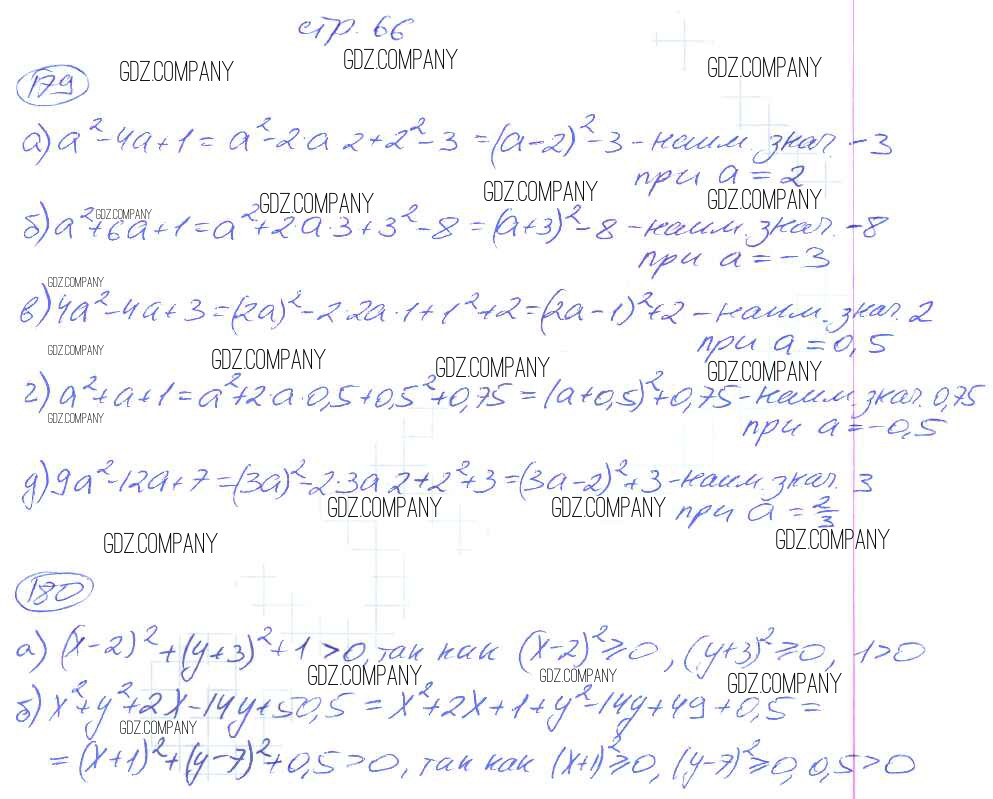 стр. 66
GDZ.COMPANY GDZ.COMPANY GDZ.COMPANY
179
а) a²-4a+1 = a²-2·a 2+2²-3 = (a-2)²-3 - наим. знач. -3
при a = 2
GDZ.COMPANY GDZ.COMPANY GDZ.COMPANY GDZ.COMPANY
б) a²+6a+1 = a²+2·a·3+3²-8 = (a+3)²-8 - наим. знач. -8
при a = -3
GDZ.COMPANY
в) 4a²-4a+3 = (2a)²-2·2a·1+1²+2 = (2a-1)²+2 - наим. знач. 2
при a = 0,5
GDZ.COMPANY GDZ.COMPANY GDZ.COMPANY GDZ.COMPANY
г) a²+a+1 = a²+2·a·0,5+0,5²+0,75 = (a+0,5)²+0,75 - наим. знач. 0,75
при a = -0,5
GDZ.COMPANY
д) 9a²-12a+7 = (3a)²-2·3a 2+2²+3 = (3a-2)²+3 - наим. знач. 3
при a = 2/3
GDZ.COMPANY GDZ.COMPANY
GDZ.COMPANY GDZ.COMPANY
180
а) (x-2)²+(y+3)²+1>0, так как (x-2)²≥0, (y+3)²≥0, 1>0
GDZ.COMPANY GDZ.COMPANY GDZ.COMPANY
б) x²+y²+2x-14y+50,5 = x²+2x+1+y²-14y+49+0,5 =
GDZ.COMPANY
= (x+1)²+(y-7)²+0,5>0, так как (x+1)²≥0, (y-7)²≥0, 0,5>0